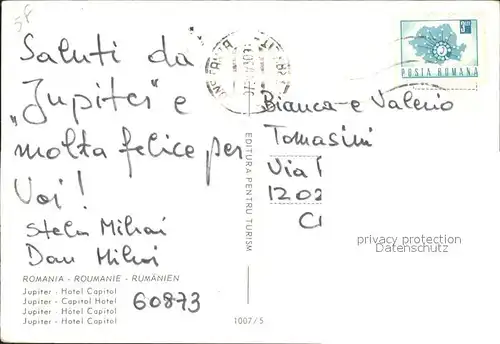 Saluti da
"Jupiter" e
molta felice per
Voi!
Stela Mihai
Dan Mihai
ROMANIA - ROUMANIE - RUMÄNIEN
Jupiter : Hotel Capitol
Jupiter - Capitol Hotel
Jupiter - Hôtel Capitol
Jupiter - Hotel Capitol
60873
EDITURA PENTRU TURISM
1007/5
POSTA ROMANA
Bianca e Valerio
Tomasini
Via
1202
privacy protection
Datenschutz